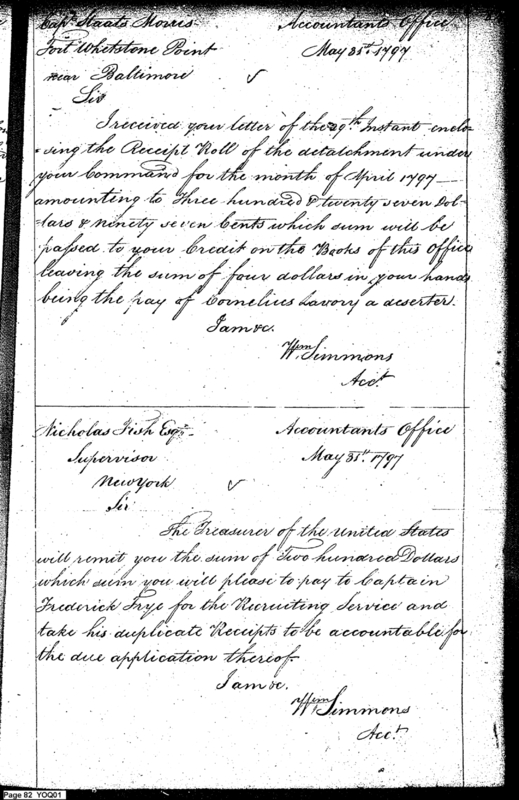 Capt. Staats Morris
Accountants Office
Fort Whetstone Point
May 31st. 1797
near Baltimore
Sir
I received your letter of the 29th. Instant enclo-
-sing the Receipt Roll of the detatchment under
your Command for the month of April 1797 —
amounting to Three hundred & twenty seven Dol-
-lars & ninety seven Cents which sum will be
passed to your Credit on the Books of this Office
leaving the sum of four dollars in your hands
being the pay of Cornelius Lavory a deserter.
I am &c.
Wm. Simmons
Acct.
Nicholas Fish Esqr.
Accountants Office
Supervisor
May 31st. 1797
New York
Sir
The Treasurer of the United States
will remit you the sum of Two hundred Dollars
which sum you will please to pay to Captain
Frederick Frye for the Recruiting Service and
take his duplicate Receipts to be accountable for
the due application thereof.
I am &c.
Wm. Simmons
Acct.
Page 82 YOQ01